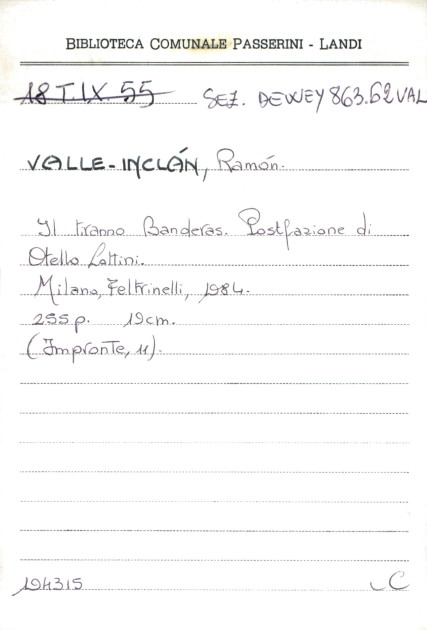 BIBLIOTECA COMUNALE PASSERINI - LANDI
18 T.IX.55 SEZ. DEWEY 863.62 VAL
VALLE-INCLÁN, Ramón.
Il tiranno Banderas. Postfazione di
Otello Lottini.
Milano, Feltrinelli, 1984.
255 p. 19 cm.
(Impronte, 11).
194315 C